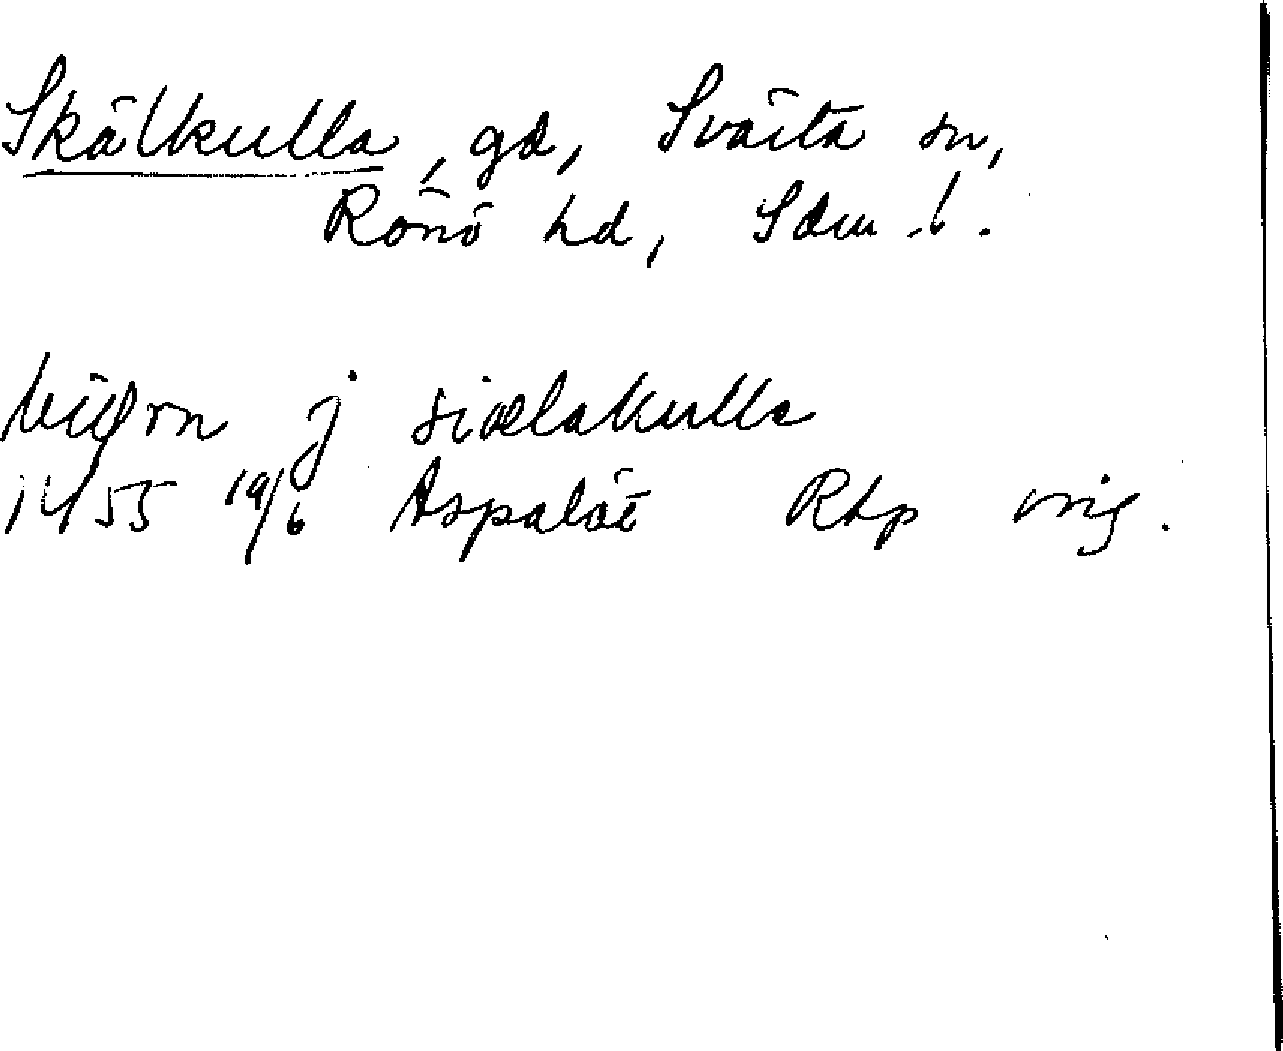 Skälkulla, gd, Svärta sn,
Rönö hd, Sdm. l.
j siælakulla
1455 19/6 Aspalöt Rhp orig.